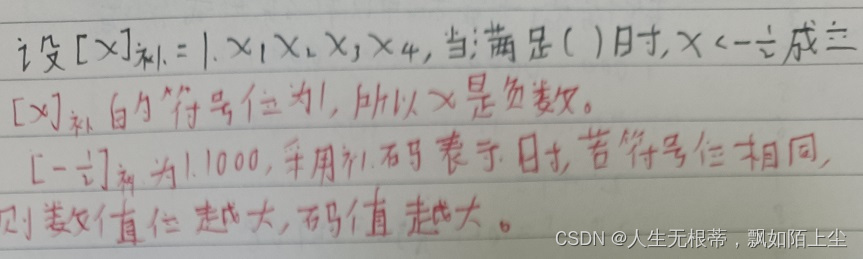 设[X]补=1.X₁X₂X₃X₄,当满足( )时,X<-½成立
[X]补的符号位为1,所以X是负数。
[-½]补为1.1000,采用补码表示时,若符号位相同,
则数值位越大,码值越大。
CSDN @人生无根蒂，飘如陌上尘